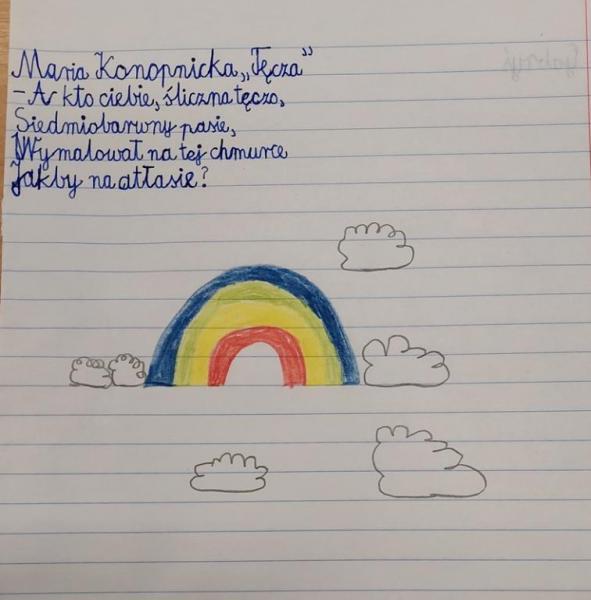 Maria Konopnicka „Tęcza”
- A kto ciebie, śliczna tęczo,
Siedmiobarwny pasie,
Wymalował na tej chmurce
Jakby na atłasie?